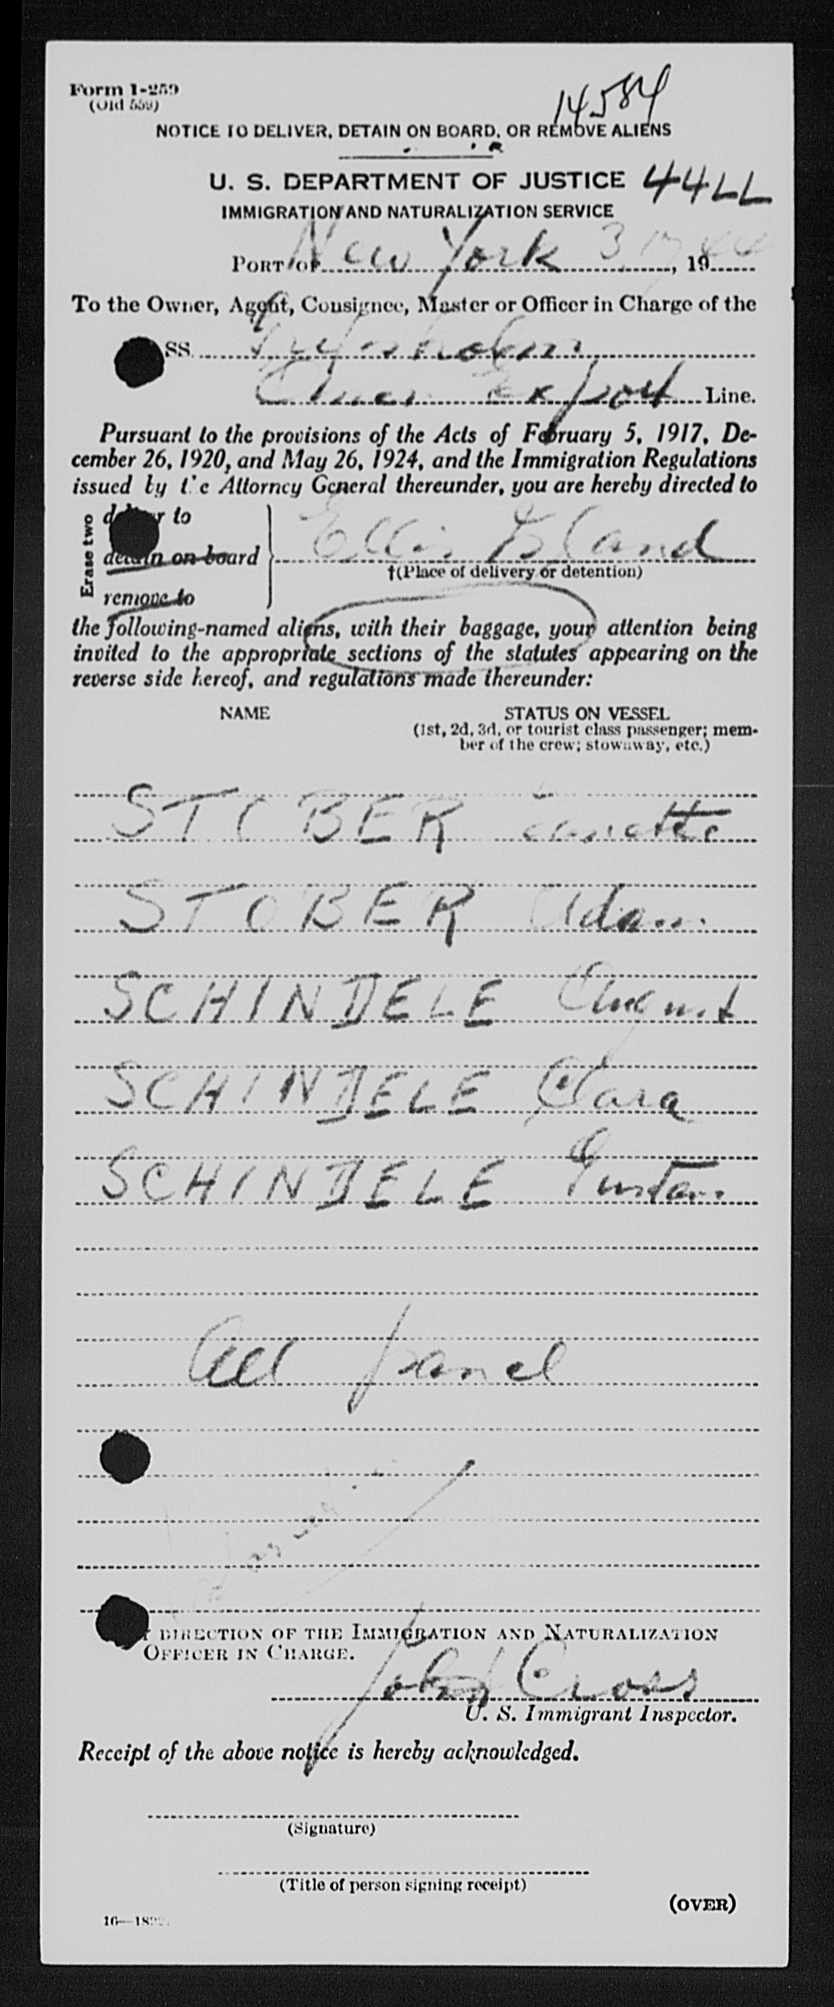 Form I-259
(Old 559)
14584
NOTICE TO DELIVER, DETAIN ON BOARD, OR REMOVE ALIENS
U. S. DEPARTMENT OF JUSTICE 44LL
IMMIGRATION AND NATURALIZATION SERVICE
PORT OF New York 3, 17, 1944
To the Owner, Agent, Consignee, Master or Officer in Charge of the
SS. Gripsholm
Amer Export Line.
Pursuant to the provisions of the Acts of February 5, 1917, De-
cember 26, 1920, and May 26, 1924, and the Immigration Regulations
issued by the Attorney General thereunder, you are hereby directed to
Erase two
deliver to
detain on board
remove to
Ellis Island
†(Place of delivery or detention)
the following-named aliens, with their baggage, your attention being
invited to the appropriate sections of the statutes appearing on the
reverse side hereof, and regulations made thereunder:
NAME STATUS ON VESSEL
(1st, 2d, 3d, or tourist class passenger; mem-
ber of the crew; stowaway, etc.)
STOBER
STOBER Adam
SCHINDELE August
SCHINDELE Clara
SCHINDELE Gustav
All panel
BY DIRECTION OF THE IMMIGRATION AND NATURALIZATION
OFFICER IN CHARGE.
John Cross
U. S. Immigrant Inspector.
Receipt of the above notice is hereby acknowledged.
(Signature)
(Title of person signing receipt)
(OVER)